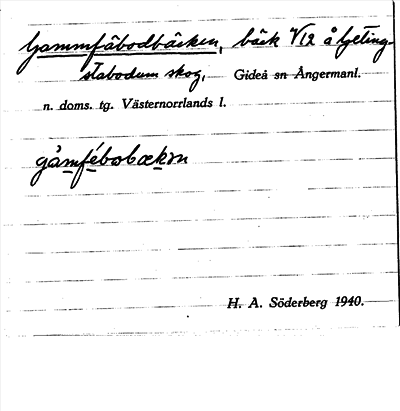 Gammfäbodbäcken, bäck V/12 å Geting-
stabodum skog, Gideå sn Ångermanl.
n. doms. tg. Västernorrlands l.
gåmfébobækɷn
H. A. Söderberg 1940.